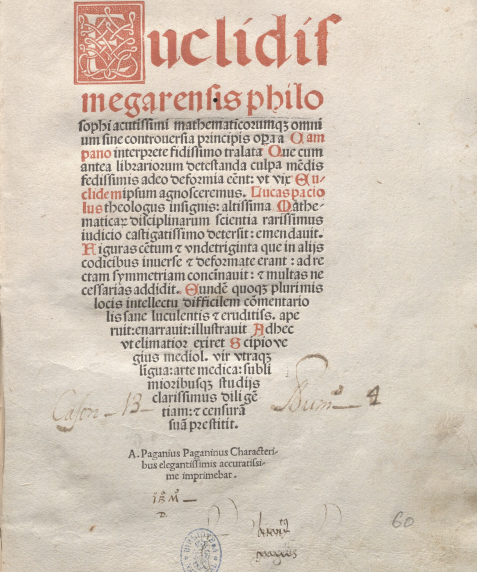 Euclidis
megarensis philo
sophi acutissimi mathematicorumqꝫ omni
um sine controuersia principis opa a Cam
pano interprete fidissimo tralata Que cum
antea librariorum detestanda culpa mēdis
fedissimis adeo deformia eēnt: vt vix Eu
clidem ipsum agnosceremus. Lucas pacio
lus theologus insignis: altissima Mathe
maticaꝝ disciplinarum scientia rarissimus
iudicio castigatissimo detersit: emendauit.
Figuras cētum ⁊ vndetriginta que in alijs
codicibus inuerse ⁊ deformate erant: ad re
ctam symmetriam concinauit: ⁊ multas ne
cessarias addidit. Eundē quoqꝫ plurimis
locis intellectu difficilem cōmentario
lis sane luculentis ⁊ eruditiss. ape
ruit: enarrauit: illustrauit Adhec
vt elimatior exiret Scipio ve
gius mediol. vir vtraqꝫ
ligua: arte medica: subli
mioribusqꝫ studijs
clarissimus diligē
tiam: ⁊ censurā
suā prestitit.
Cason - 13 - Num.º - 4
A. Paganius Paganinus Characteri-
bus elegantissimis accuratissi-
me imprimebat.
60